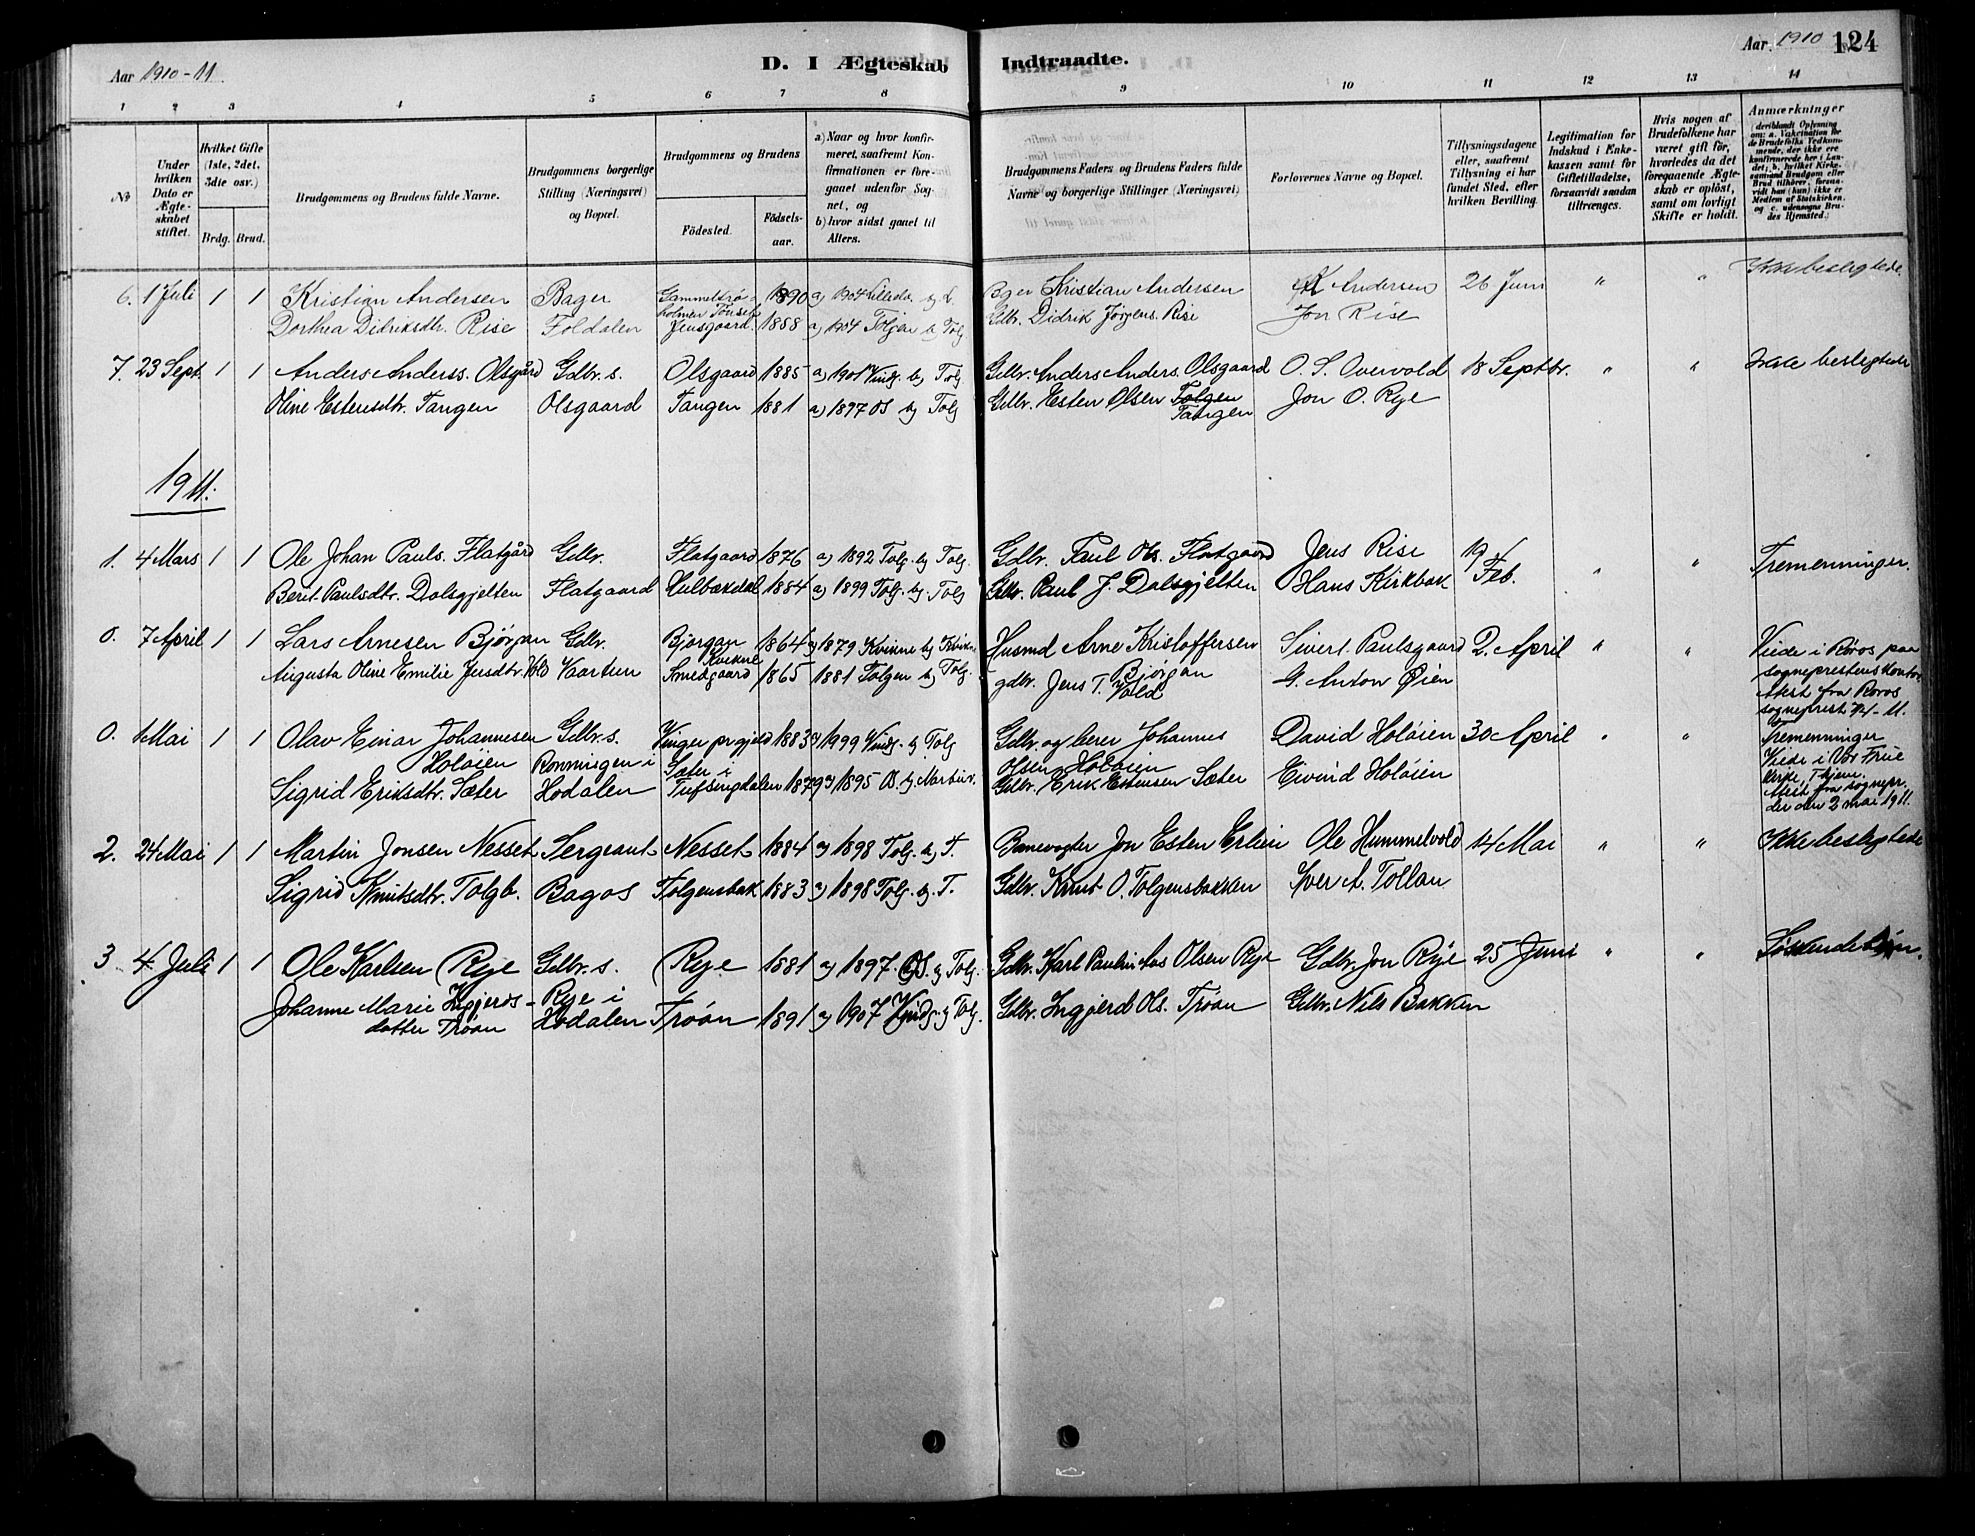 Aar 1910-11.
D. I Ægteskab Indtraadte.
Aar 1910
124
1 2 3 4 5 6 7 8 9 10 11 12 13 14
No
Under hvilken Dato er Ægteskabet stiftet.
Hvilket Gifte (1ste, 2det, 3die osv.)
Brdg. Brud.
Brudgommens og Brudens fulde Navne.
Brudgommens borgerlige Stilling (Næringsvei) og Bopæl.
Brudgommens og Brudens
Fødested.
Fødselsaar.
a) Naar og hvor konfirmeret, saafremt Konfirmationen er foregaaet udenfor Sognet, og
b) hvor sidst gaaet til Alters.
Brudgommens Faders og Brudens Faders fulde Navne og borgerlige Stillinger (Næringsvei)
Forlovernes Navne og Bopæl.
Tillysningsdagene eller, saafremt Tillysning ei har fundet Sted, efter hvilken Bevilling.
Legitimation for Indskud i Enkekassen samt for Giftetilladelse, forsaavidt saadan tiltrænges.
Hvis nogen af Brudefolkene har været gift før, hvorledes da det foregaaende Ægteskab er opløst, samt om lovligt Skifte er holdt.
Anmærkninger
(deriblandt Oplysning om: a. Vakcination for de Brudefolks Vedkommende, der ikke ere konfirmerede her i Landet; b. hvilket Kirkesamfund Brudgom eller Brud tilhører, forsaavidt han (hun) ikke er Medlem af Statskirken, og c. udensogns Brudes Hjemsted.)
6. 1 Juli 1 1 Kristian Andersen Bager 1890 a) 1904 Kristian Andersen Andersen 26 Juni " " Ikke beslegtede
Dorthea Didriksdtr. Rise Foldalen Jensgaard. 1888 a) 1904 Tolgen b) Tolg Gdbr. Didrik Jørgens. Rise Jon Rise
7. 23 Sept. 1 1 Anders Anderss. Olsgård Gdbr. s. Olsgaard 1885 a) 1901 Vindg. b) Tolg Gdbr. Anders Anders. Olsgaard O. S. Overvold 18 Septbr. " " Ikke beslegtede
Oline Estensdtr. Tangen Olsgaard Tangen 1881 a) 1897 OS b) Tolg Gdbr. Esten Olsen Tolgen Jon O. Rye
Tangen
1911.
1. 4 Mars 1 1 Ole Johan Pauls. Flatgård Gdbr. Flatgaard 1876 a) 1892 Tolg. b) Tolg. Gdbr. Paul Ols. Flatgaard Jens Rise 19 " " Tremenninger.
Berit Paulsdtr. Dalsgjelten Flatgaard Hulbækdal 1884 a) 1899 Tolg. b). Tolg Gdbr. Paul J. Dalsgjelten Hans Kirkbak Feb.
0. 7 April 1 1 Lars Arnesen Bjørgan Gdbr. Bjørgan 1864 a) 1879 Kvikne b) Kvikne Husmd Arne Kristoffersen Sivert Paulsgaard 2. April " " Viede i Røros paa
Kvikne Bjørgan sogneprestens kontor.
Augusta Oline Emilie Jensdtr. Vold Vaartun Smedgaard 1865 1881 Tolgen b) Tolg. gdbr. Jens T. Vold G. Anton Øien Attest fra Røros
sogneprest 7/4-11.
0. 1 Mai 1 1 Olav Einar Johannesen Gdbr. s. Vinger prgjeld 1883 a) 1999 Vindg. b) Tolg Gdbr. og lærer Johannes David Holøien 30 April " " Tremenninger
Holøien Rønningen i Sæter i Olsen Holøien Viede i Vor Frue
Sigrid Eriksdtr. Sæter Hodalen Tufsingdalen 1879 a) 1895 OS. b) Narbuv. Gdbr. Erik Estensen Sæter Eivind Holøien kirke, Thjem.
Attest fra sognepr.
der den 2 mai 1911.
2. 24 Mai 1 1 Martin Jonsen Nesset Sergeant Nesset 1884 a) 1898 Tolg. b) T. Banevogter Jon Esten Erlien Ole Hummelvold 14 Mai " " Ikke beslegtede
Sigrid Knutsdtr. Tolgb. Røros Tolgensbak 1883 a) 1898 Tolg. b). T. Gdbr. Knut O. Tolgensbakken Iver A. Tollan
3 4 Juli 1 1 Ole Karlsen Rye Gdbr. s. Rye 1881 a) 1897. OS. b) Tolg. Gdbr. Karl Paulinius Olsen Rye Gdbr. Jon Rye 25 Juni " " Søskendebørn.
Johanne Marie Ingjerds- Rye i
datter Trøan Hodalen Trøan 1891 a) 1907 Vindg. b) Tolg. Gdbr. Ingjerd Ols. Trøan Gdbr. Nils Bakken